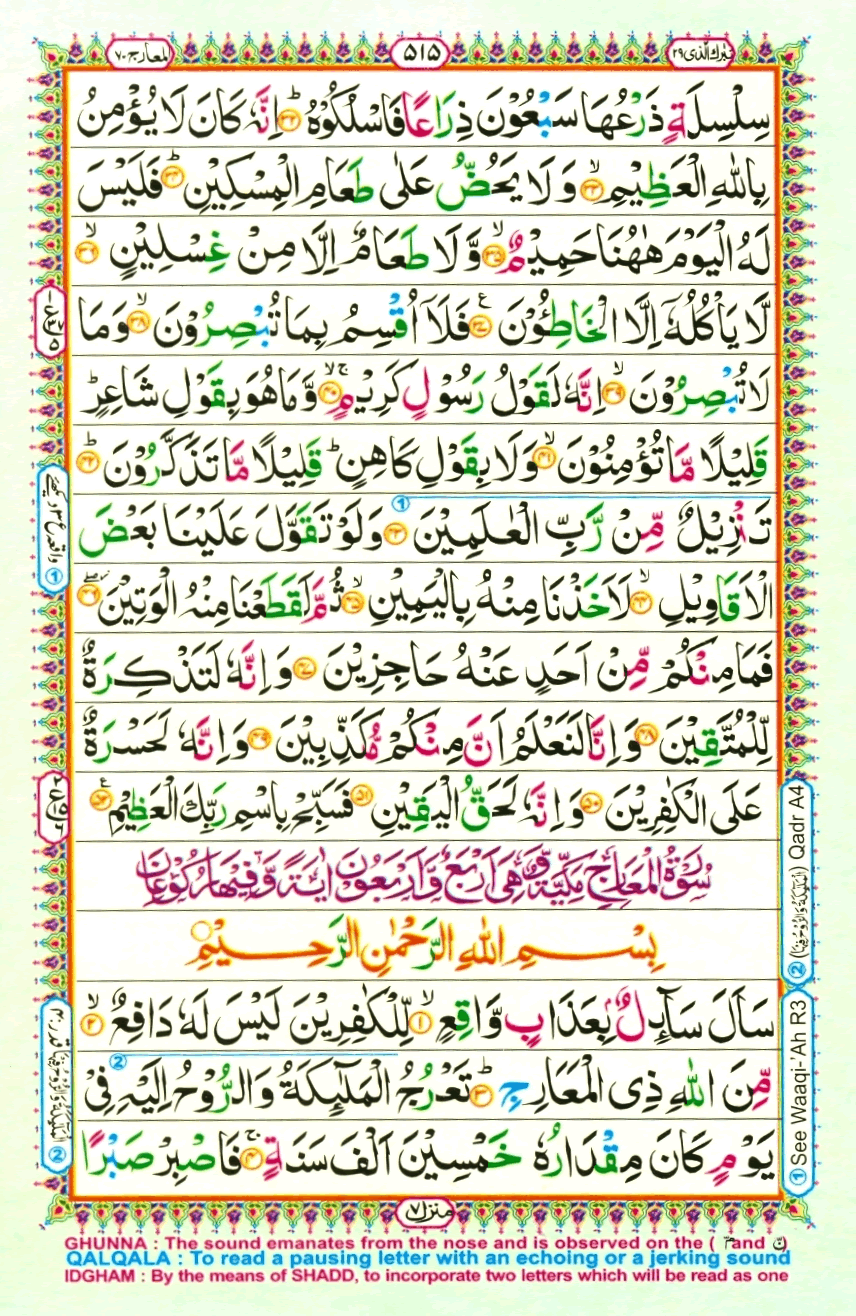 تبرك الذى ٢٩
٥١٥
المعارج ٧٠
سِلْسِلَةٍ ذَرْعُهَا سَبْعُوْنَ ذِرَاعًا فَاسْلُكُوْهُ ؕ﴿۳۲﴾ اِنَّهٗ كَانَ لَا يُؤْمِنُ
بِاللّٰهِ الْعَظِيْمِ ۙ﴿۳۳﴾ وَ لَا يَحُضُّ عَلٰى طَعَامِ الْمِسْكِيْنِ ؕ﴿۳۴﴾ فَلَيْسَ
لَهُ الْيَوْمَ هٰهُنَا حَمِيْمٌ ۙ﴿۳۵﴾ وَّ لَا طَعَامٌ اِلَّا مِنْ غِسْلِيْنٍ ۙ﴿۳۶﴾
لَّا يَاْكُلُهٗۤ اِلَّا الْخَاطِـُٔوْنَ ﴿۳۷﴾ فَلَاۤ اُقْسِمُ بِمَا تُبْصِرُوْنَ ۙ﴿۳۸﴾ وَ مَا
لَا تُبْصِرُوْنَ ۙ﴿۳۹﴾ اِنَّهٗ لَقَوْلُ رَسُوْلٍ كَرِيْمٍ ۚۙ﴿۴۰﴾ وَّ مَا هُوَ بِقَوْلِ شَاعِرٍ ؕ
قَلِيْلًا مَّا تُؤْمِنُوْنَ ۙ﴿۴۱﴾ وَ لَا بِقَوْلِ كَاهِنٍ ؕ قَلِيْلًا مَّا تَذَكَّرُوْنَ ؕ﴿۴۲﴾
تَنْزِيْلٌ مِّنْ رَّبِّ الْعٰلَمِيْنَ ﴿۴۳﴾ وَ لَوْ تَقَوَّلَ عَلَيْنَا بَعْضَ ①
الْاَقَاوِيْلِ ۙ﴿۴۴﴾ لَاَخَذْنَا مِنْهُ بِالْيَمِيْنِ ۙ﴿۴۵﴾ ثُمَّ لَقَطَعْنَا مِنْهُ الْوَتِيْنَ ﴿۴۶﴾
فَمَا مِنْكُمْ مِّنْ اَحَدٍ عَنْهُ حَاجِزِيْنَ ﴿۴۷﴾ وَ اِنَّهٗ لَتَذْكِرَةٌ
لِّلْمُتَّقِيْنَ ﴿۴۸﴾ وَ اِنَّا لَنَعْلَمُ اَنَّ مِنْكُمْ مُّكَذِّبِيْنَ ﴿۴۹﴾ وَ اِنَّهٗ لَحَسْرَةٌ
عَلَى الْكٰفِرِيْنَ ﴿۵۰﴾ وَ اِنَّهٗ لَحَقُّ الْيَقِيْنِ ﴿۵۱﴾ فَسَبِّحْ بِاسْمِ رَبِّكَ الْعَظِيْمِ ﴿۵۲﴾
سُوْرَةُ الْمَعَارِجِ مَكِّيَّةٌ وَّهِىَ اَرْبَعٌ وَّاَرْبَعُوْنَ اٰيَةً وَّفِيْهَا رُكُوْعَانِ
بِسْمِ اللّٰهِ الرَّحْمٰنِ الرَّحِيْمِ
سَاَلَ سَآئِلٌۢ بِعَذَابٍ وَّاقِعٍ ۙ﴿۱﴾ لِّلْكٰفِرِيْنَ لَيْسَ لَهٗ دَافِعٌ ۙ﴿۲﴾
مِّنَ اللّٰهِ ذِى الْمَعَارِجِ ؕ﴿۳﴾ تَعْرُجُ الْمَلٰٓئِكَةُ وَ الرُّوْحُ اِلَيْهِ فِىْ ②
يَوْمٍ كَانَ مِقْدَارُهٗ خَمْسِيْنَ اَلْفَ سَنَةٍ ۚ﴿۴﴾ فَاصْبِرْ صَبْرًا
منزل ٧
① See Waaqi-'Ah R3
② Qadr A4
GHUNNA : The sound emanates from the nose and is observed on the ( مّ and نّ )
QALQALA : To read a pausing letter with an echoing or a jerking sound
IDGHAM : By the means of SHADD, to incorporate two letters which will be read as one